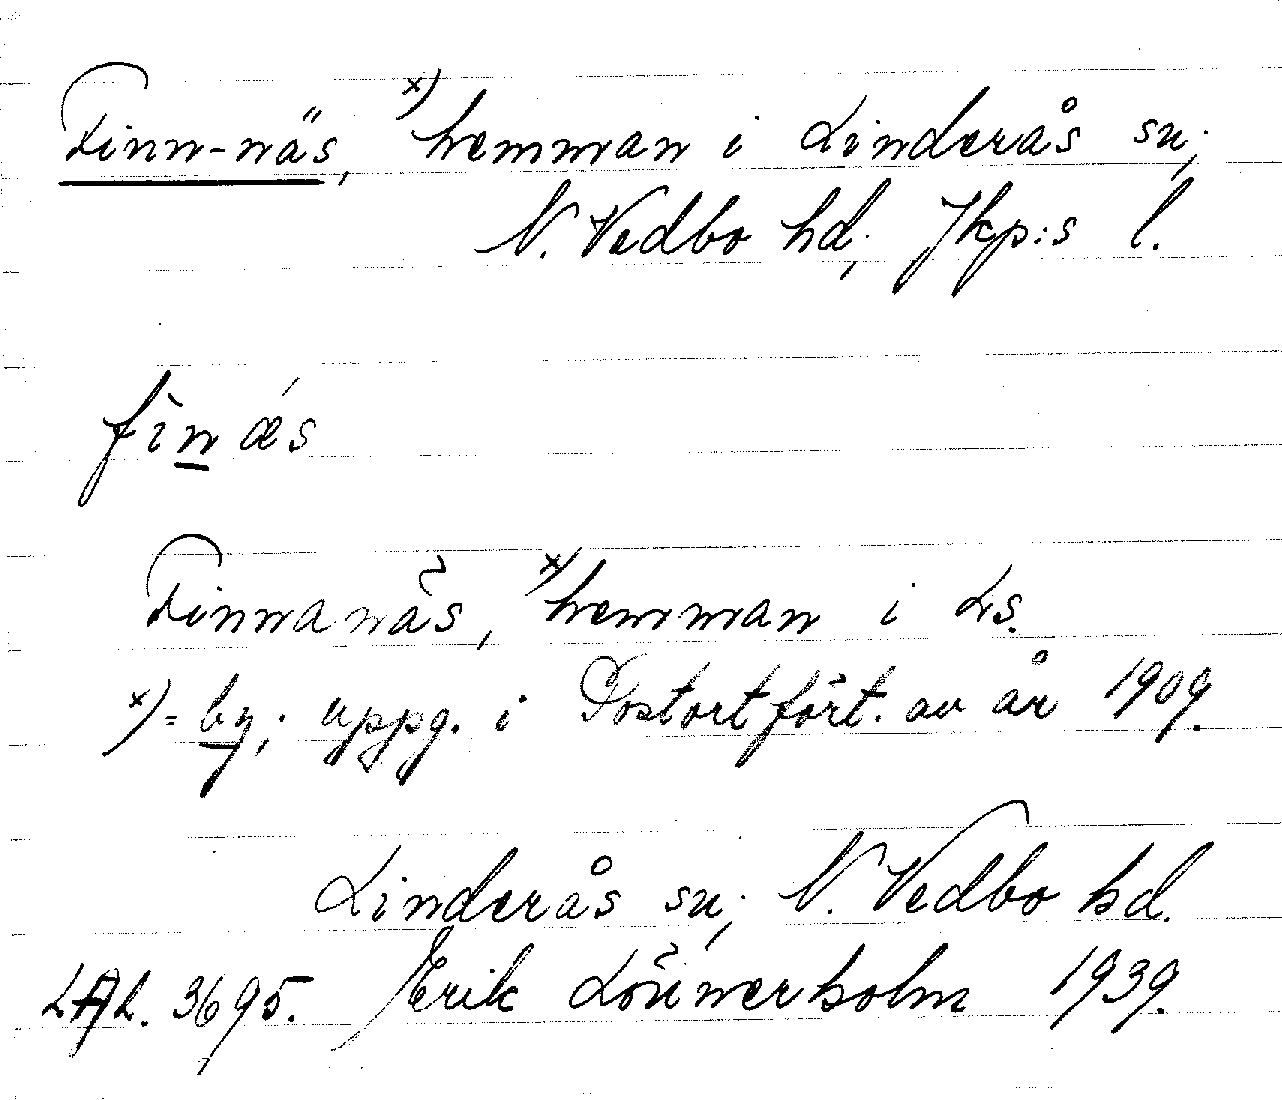 Finn-näs, x) hemman i Linderås sn;
N. Vedbo hd; Jkp:s l.
fìnǽs
Finnanäs, x) hemman i Ls.
x) = by; uppg. i Postortfört. av år 1909.
Linderås sn; N. Vedbo hd.
LAL. 3695. Erik Lönnerholm 1939.